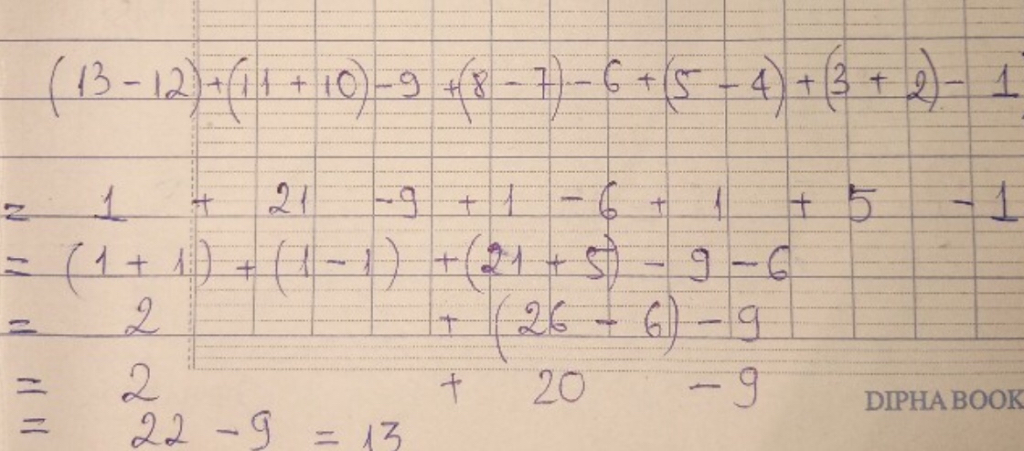 (13 - 12) + (11 + 10) - 9 + (8 - 7) - 6 + (5 - 4) + (3 + 2) - 1
= 1 + 21 - 9 + 1 - 6 + 1 + 5 - 1
= (1 + 1) + (1 - 1) + (21 + 5) - 9 - 6
= 2 + (26 - 6) - 9
= 2 + 20 - 9
DIPHA BOOK
= 22 - 9 = 13